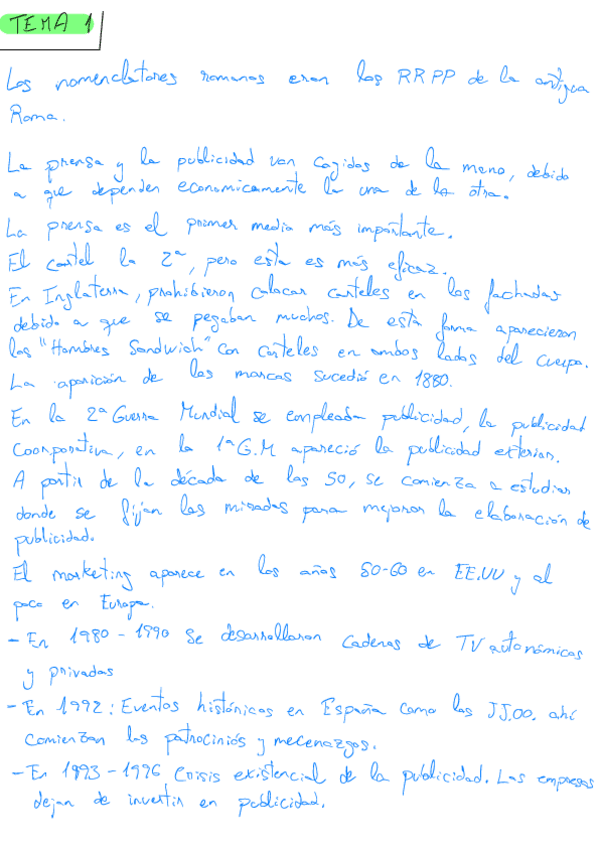 TEMA 1
Los nomenclatores romanos eran los RRPP de la antigua
Roma.
La prensa y la publicidad van cogidas de la mano, debido
a que dependen economicamente la una de la otra.
La prensa es el primer medio más importante.
El cartel la 2ª, pero esta es más eficaz.
En Inglaterra, prohibieron colocar carteles en las fachadas
debido a que se pegaban muchos. De esta forma aparecieron
los "Hombres Sandwich" con carteles en ambos lados del cuerpo.
La aparición de las marcas sucedió en 1880.
En la 2ª Guerra Mundial se empleaba publicidad, la publicidad
Coorporativa, en la 1ª G.M apareció la publicidad exterior.
A partir de la década de las 50, se comienza a estudiar
donde se fijan las miradas para mejorar la elaboración de
publicidad.
El marketing aparece en los años 50-60 en EE.UU y al
poco en Europa.
- En 1980 - 1990 Se desarrollaron cadenas de TV autonómicas
y privadas
- En 1992: Eventos históricos en España como los JJ.OO. ahí
comienzan los patrociniós y mecenazgos.
- En 1993 - 1996 Crisis existencial de la publicidad. Las empresas
dejan de invertir en publicidad.